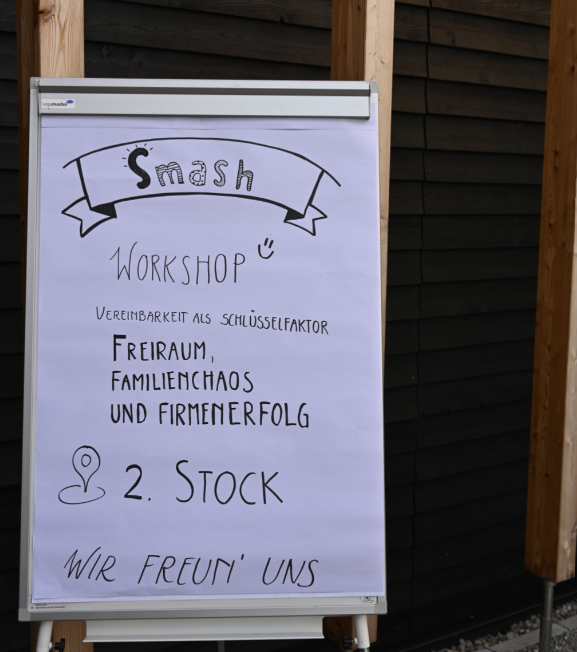 Smash
WORKSHOP
VEREINBARKEIT ALS SCHLÜSSELFAKTOR
FREIRAUM,
FAMILIENCHAOS
UND FIRMENERFOLG
2. STOCK
WIR FREUN' UNS